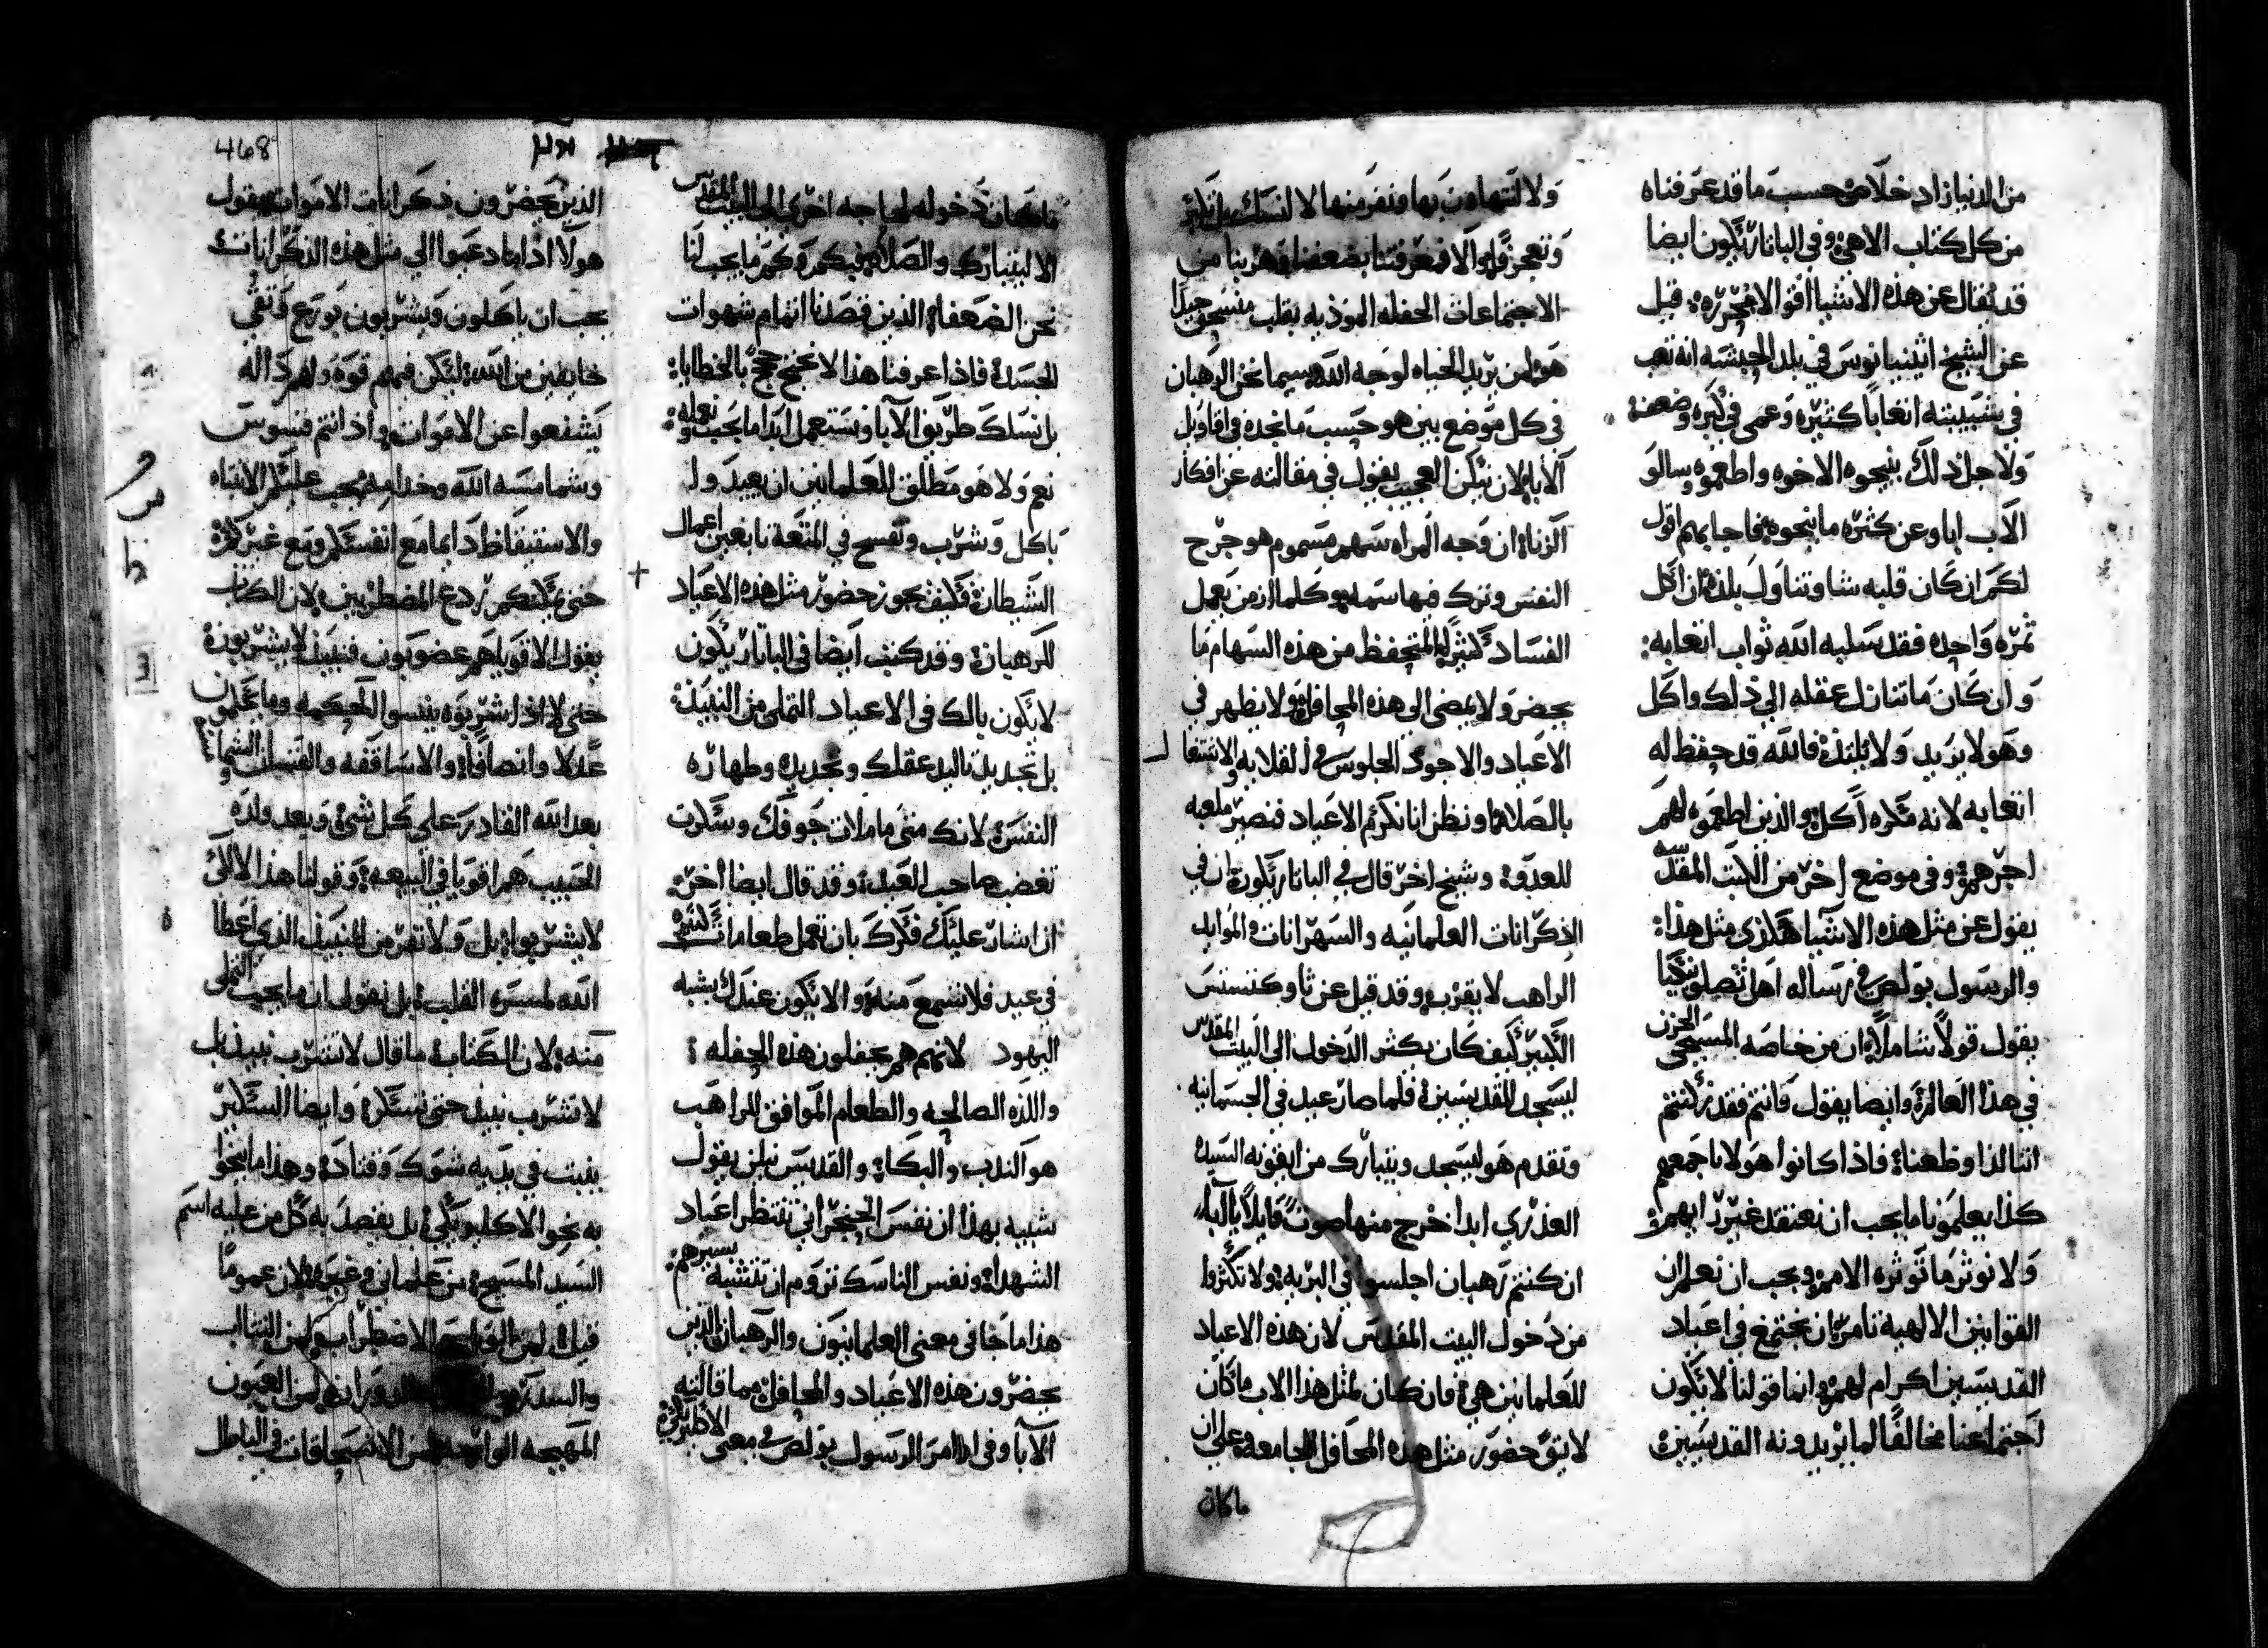 من الدنيا زاد خلاص حسب ما قد عرفناه
من كل كتاب الاهي وفي الباناريكون ايضا
قد يقال عن هذه الاشيا اقوالا محرره قيل
عن الشيخ اثينيانوس في بلد الحبشه انه تعب
في شبيبته اتعابا كثيره وعمي في كبره وضعف
ولاجل ذلك بنيحوه الاخوه واطعموه وسالو
الاب اباو عن كثره ما بنيحوه فاجابهم اقول
لكم ان كان قلبه شا وتناول بلذه ان اكل
ثمره واحده فقد سلبه الله ثواب اتعابه
وان كان ما تنازل عقله الي ذلك واكل
وهو لا يريد ولا يلتذ فالله قد حفظ له
اتعابه لانه مكره اكل والذين اطعموه لهم
اجرهم وفي موضع اخر من الكتب المقدسه
يقول عن مثل هذه الاشيا هكذي مثل هذا
والرسول بولص في رساله اهل تصلونيكيا
يقول قولا شاملا ان من خاصه المسيحي الحزن
في هذا العالم وايضا يقول وانتم فقد تركتم
اتنا لذا وطعنا فاذا كانوا هولا باجمعهم
كذا يعلمونا ما يجب ان نعتقد غير رايهم
ولا نوثر ما توثره الامم ويجب ان نعلم ان
القوانين الالهية تامر ان نجتمع في اعياد
القديسين اكرام لهم وانما قولنا لا يكون
اجتماعنا مخالفا لما يريدونه القديسين
ولا نتهاون بها ونفر منها لا لنسك بل
ونعجز قالوا الا فمعرفتنا بضعفنا وهربنا من
الاجتماعات الحفله الموذيه بقلب منسحق جيدا
هو لمن يريد الحياه لوجه الله سيما نحن الرهبان
في كل موضع بين هو حسب ما نجده في اقاويل
الابا لان نيلن العجيب يقول في مقالته عن افكار
الزنا ان وجه المراه سهم مسموم هو جرح
النفس وترك فيها سمه وكلما ازمن يعمل
الفساد كثير المتحفظ من هذه السهام ما
يحضر ولا يمضي الي هذه المحافل ولا يظهر في
الاعياد والاجود الجلوس في القلايه والاشتغا ل
بالصلاه ونظن انا نكرم الاعياد فنصير ملعبه
للعدو وشيخ اخر قال في الباناريكون ان في
الذكرانات العلمانيه والسهرانات والموايد
الراهب لا يقرب وقد قيل عن ثاوكتستس
الكبير كيف كان يكثر الدخول الي البيت المقدس
ليسجد للقديسين فلما صار عيد في الجسمانيه
وتقدم هو ليسجد ويتبارك من ايقونه السيده
العذري ابدا خرج منها صوت قايلا يا ابا
ان كنتم رهبان اجلسوا في البريه ولا تكثروا
من دخول البيت المقدس لان هذه الاعياد
للعلمانين هي فان كان لمثل هذا الاب ما كان
لايق حضور مثل هذه المحافل الجامعه وعلي ان
ما كان
468
ما كان دخوله لحاجه اخري الي البيت المقدس
الا ليتبارك والصلاه فيكم وكم ما يجب لنا
نحن الضعفا الذين قصدنا اتمام شهوات
الجسد فاذا عرفنا هذا لا نحتج حجج بالخطايا
بل نسلك طريق الابا ونستعمل ابدا ما يجب ونعلمه
نعم ولا هو مطلق للعلمانين ان يعيد ول
باكل وشرب وتفسح في المتعه تابعين اعمال
الشيطان فكيف يجوز حضور مثل هذه الاعياد
للرهبان وقد كتب ايضا في الباناريكون
لا يكون بالك في الاعياد التملي من النبيذ
بل تجديد تاليد عقلك وتجديده وطهاره
النفس لانك متي ما ملات جوفك وسكرت
تغضب صاحب العيد وقد قال ايضا اخر
اذا شار عليك فكرك بان تعمل طعامات كثيره
في عيد فلا تسمع منه والا يكون عندك يشبه
اليهود لانهم هم يحفلون هذه الحفله
واللذه الصالحه والطعام الموافق للراهب
هو الندب والبكا والقديس نيلن يقول
شبيه بهذا ان نفس الحنجراني تنتظر اعياد
الشهدا ونفس الناسك تروم ان تتشبه بسيرهم
هذا ما جا في معني العلمانيون والرهبان الذين
يحضرون هذه الاعياد والمحافل مما قالته
الابا وفي اوامر الرسول بولص في معني الاكليريكي
الذين يحضرون ذكرانات الاموات يقول
هولا اذا ما دعيوا الي مثل هذه الذكرانات
يجب ان ياكلون ويشربون بورع وتقي
خايفين من الله ليكن فيهم قوه ولهم داله
يشفعوا عن الاموات واذ انتم قسوس
وشمامسه الله وخدامه يجب عليكم الانتباه
والاستيقاظ دايما مع انفسكم ومع غيركم
حتي يمكنكم ردع المضطربين لان الكتاب
يقول الاقويا هم غضوبون فنبيذ لا يشربون
حتي لا اذا شربوه ينسوا الحكمه وما يحكمون
عدلا وانصافا والاساقفه والقسان والشمامسه
بعد الله القادر علي كل شي وبعد ولده
الحبيب هم اقويا في البيعه وقولنا هذا الا لكي
لا يشربوا بل ولا تفر من النبيذ الذي اعطا
الله لمسره القلب بل نقول ان ما يجب التملي
منه لان الكتاب ما قال لا تشرب نبيذ بل
لا تشرب نبيذ حتي تسكر وايضا السكير
ينبت في يديه شوك وقتاد وهذا ما ينحوا
به نحوا الاكليريكي بل يقصد به كل من عليه اسم
السيد المسيح من علماني وغيره لان عموما
قيل لمن الويل لمن الاضطراب ولمن التثالب
والسدر لمن العيون
المهيجه لمن الانسحاقات في الباطل